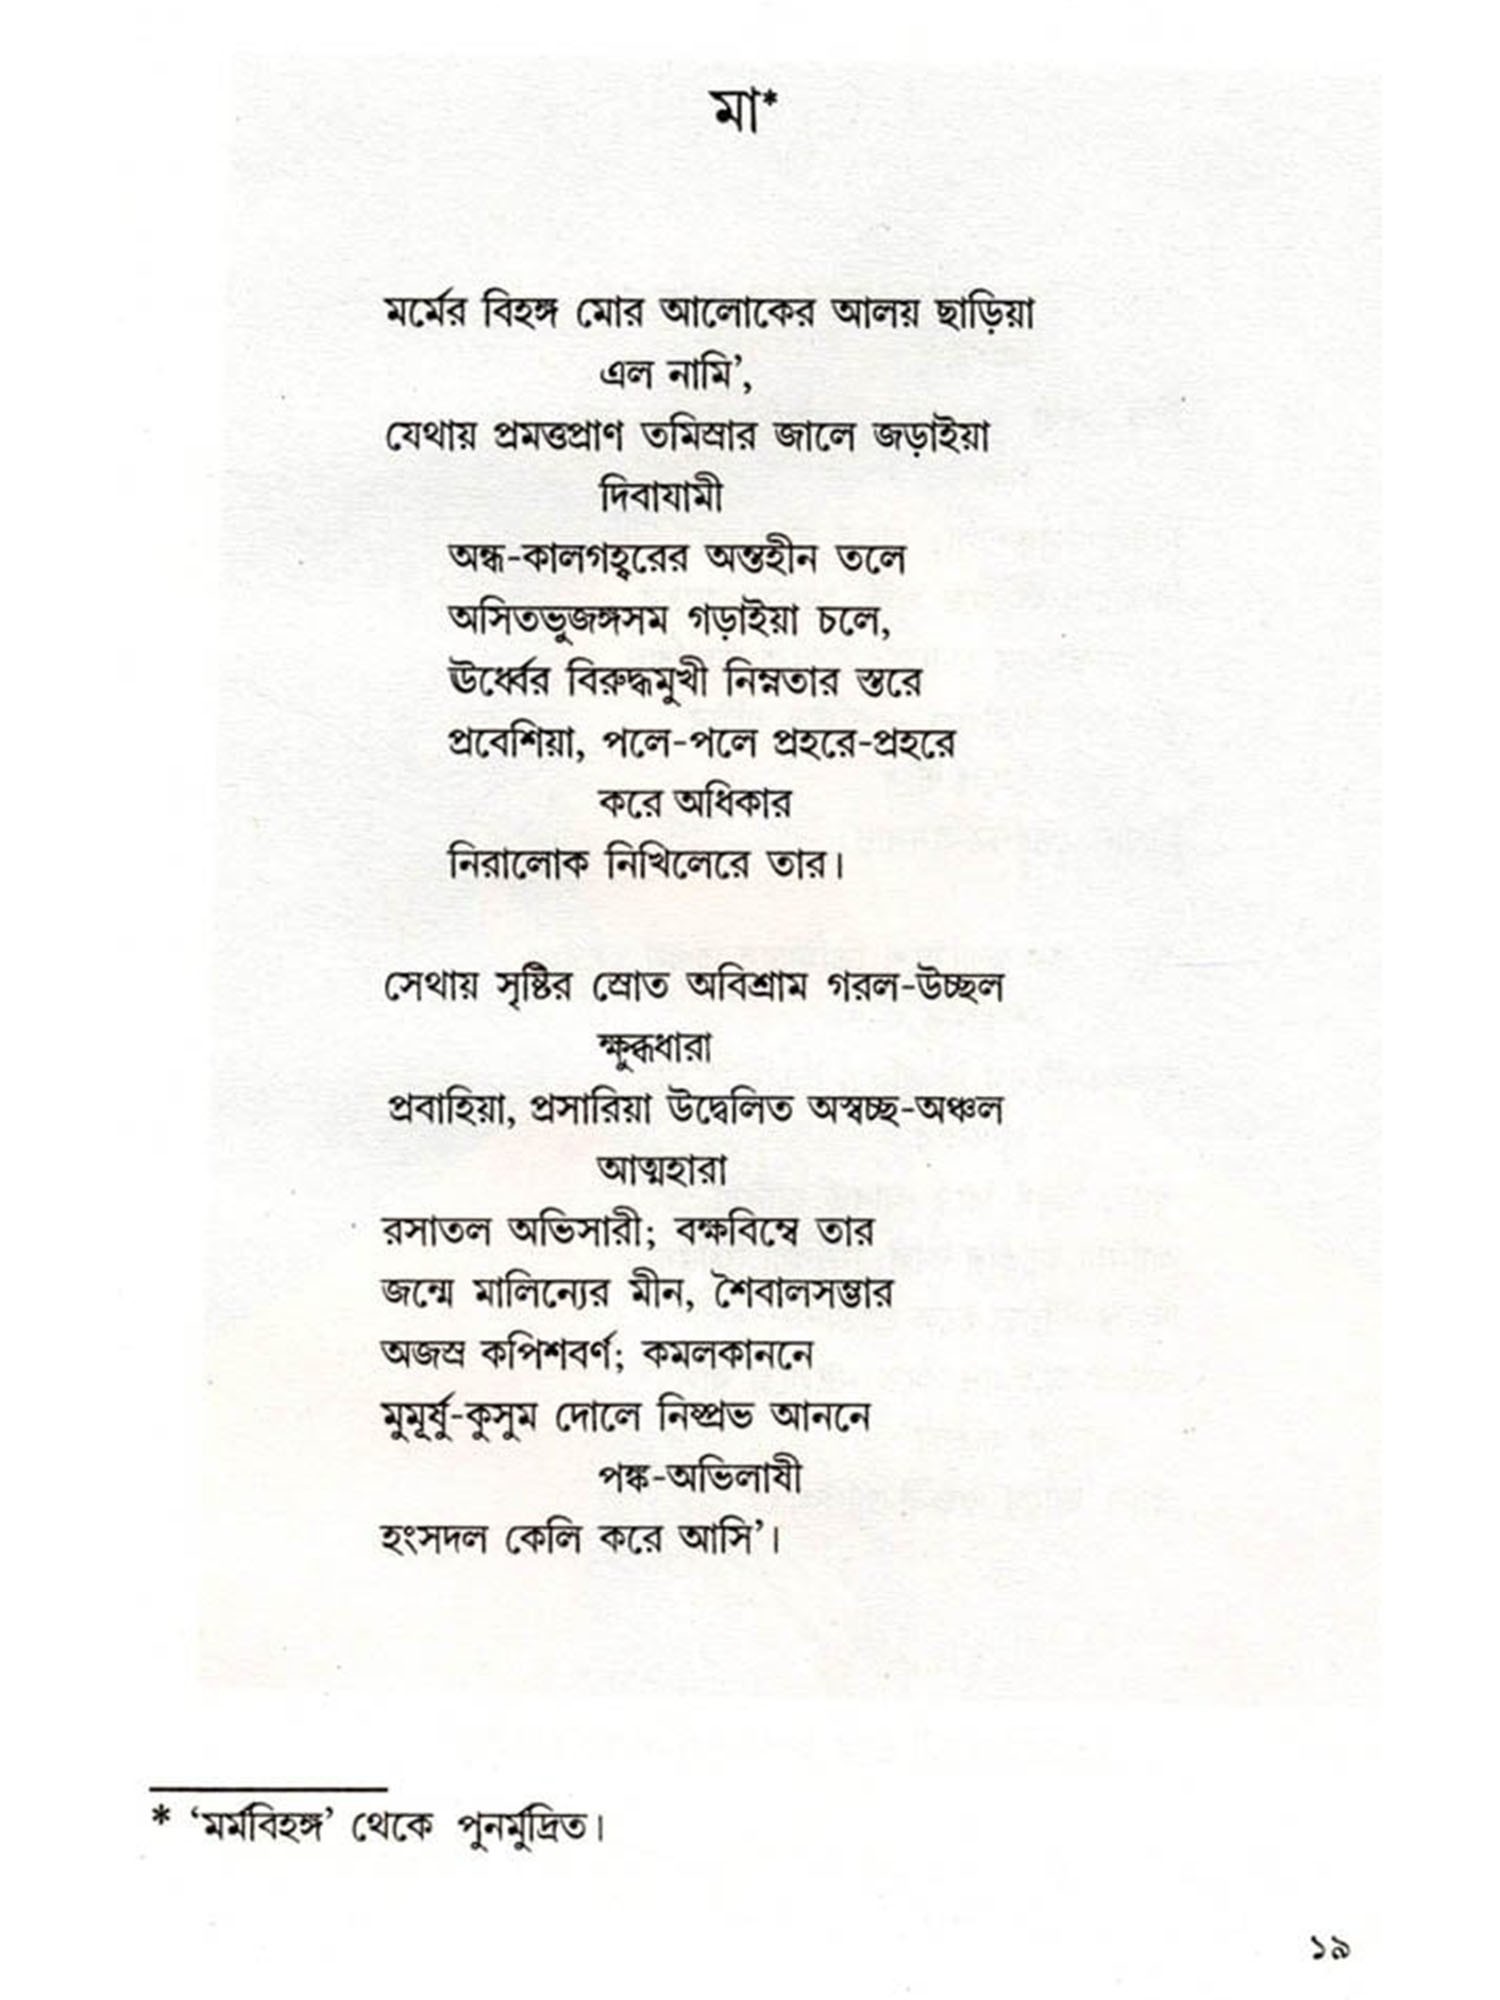 মা*
মর্মের বিহঙ্গ মোর আলোকের আলয় ছাড়িয়া
এল নামি’,
যেথায় প্রমত্তপ্রাণ তমিস্রার জালে জড়াইয়া
দিবাযামী
অন্ধ-কালগহ্বরের অন্তহীন তলে
অসিতভুজঙ্গসম গড়াইয়া চলে,
ঊর্ধ্বের বিরুদ্ধমুখী নিম্নতার স্তরে
প্রবেশিয়া, পলে-পলে প্রহরে-প্রহরে
করে অধিকার
নিরালোক নিখিলেরে তার।
সেথায় সৃষ্টির স্রোত অবিশ্রাম গরল-উচ্ছল
ক্ষুব্ধধারা
প্রবাহিয়া, প্রসারিয়া উদ্বেলিত অস্বচ্ছ-অঞ্চল
আত্মহারা
রসাতল অভিসারী; বক্ষবিম্বে তার
জন্মে মালিন্যের মীন, শৈবালসম্ভার
অজস্র কপিশবর্ণ; কমলকাননে
মুমূর্ষু-কুসুম দোলে নিষ্প্রভ আননে
পঙ্ক-অভিলাষী
হংসদল কেলি করে আসি’।
* ‘মর্মবিহঙ্গ’ থেকে পুনর্মুদ্রিত।
১৯